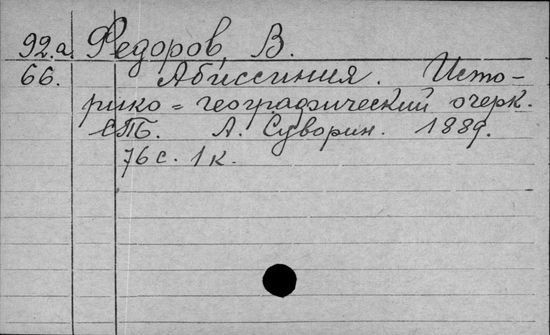 92.a. Федоров, В.
66. Абиссиния. Исто-
рико=географический очерк.
СПБ. А. Суворин. 1889.
76 с. 1 к.